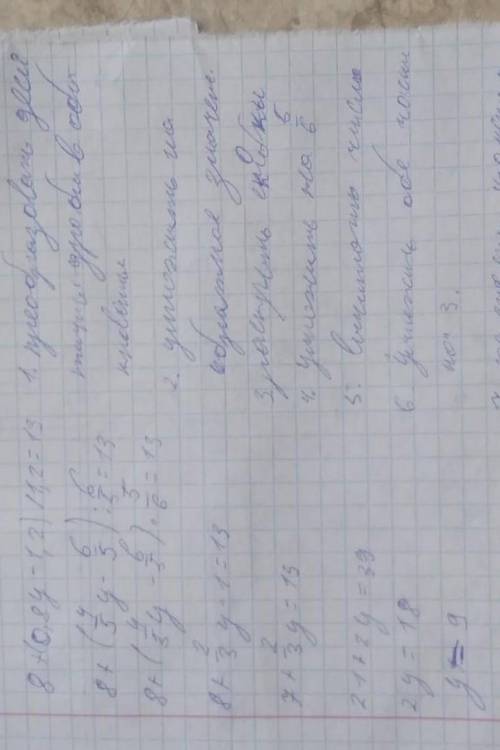 8+(0,8y-1,2):1,2=13
8+(4/5y-6/5):6/5=13
8+(4/5y-6/5)·5/6=13
8+2/3y-1=13
7+2/3y=13
21+2y=39
2y=18
y=9
1. преобразовать деся
тичные дроби в обы
кновенные
2. умножить на
обратное значен.
3. раскрыть скобки
4. умножить на 5/6
5. вычислить числа
6. умножить обе части
на 3.